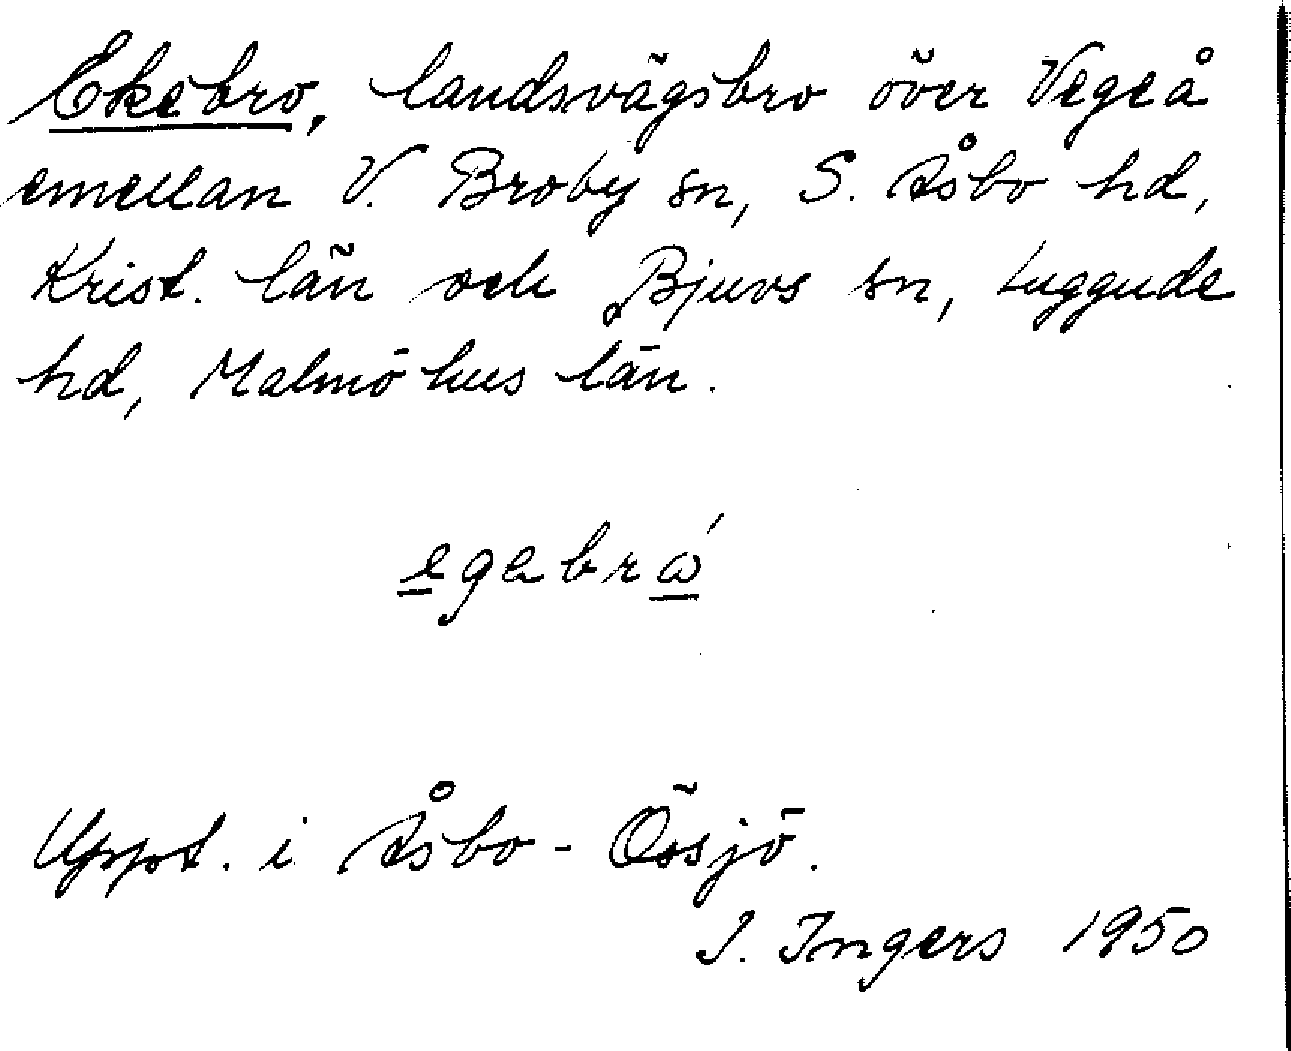 Ekebro, landsvägsbro över Vegeå
emellan V. Broby sn, S. Åsbo hd,
Krist. län och Bjuvs sn, Luggude
hd, Malmöhus län.
egebrω´
Uppt. i Åsbo-Össjö.
I. Ingers 1950